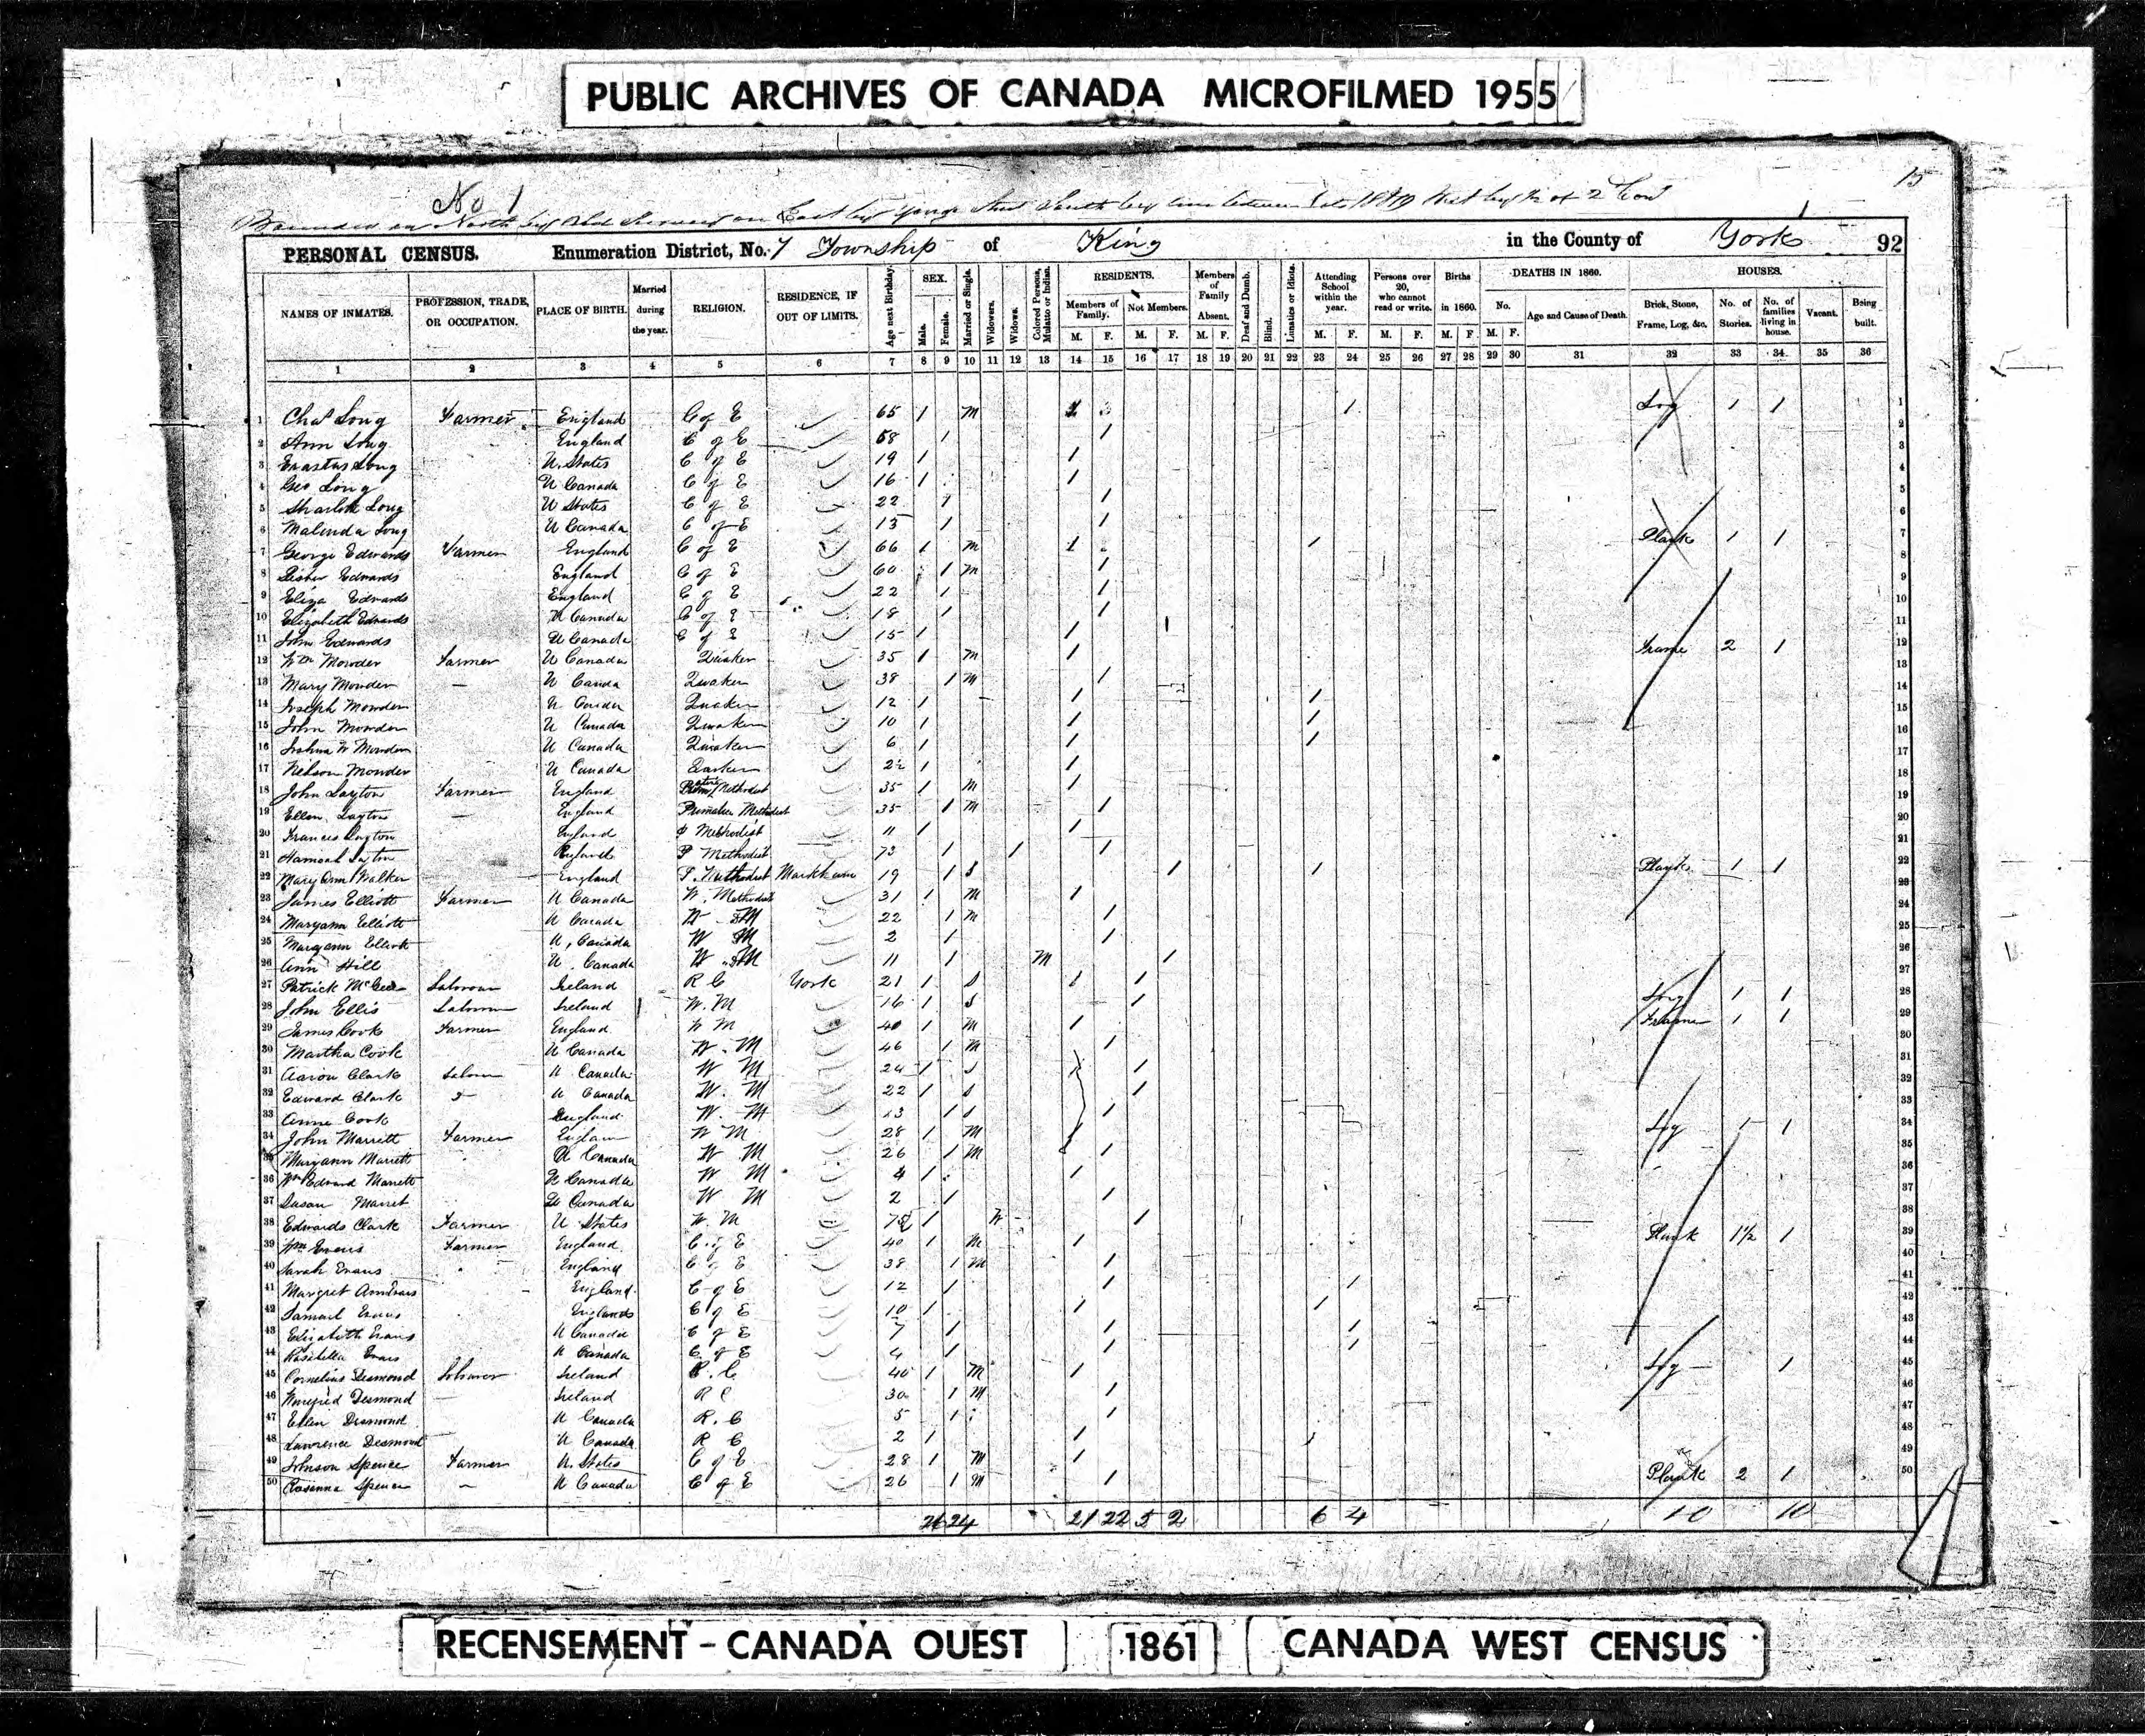 PUBLIC ARCHIVES OF CANADA MICROFILMED 1955
15
No 1
Bounded on North by Old Survey on East by Yonge Street South by line between Lots West by ½ of 2 Con
PERSONAL CENSUS. Enumeration District, No. 1 Township of King in the County of York 92
NAMES OF INMATES. PROFESSION, TRADE, OR OCCUPATION. PLACE OF BIRTH. Married during the year. RELIGION. RESIDENCE, IF OUT OF LIMITS. Age next Birthday. SEX. Male. Female. Married or Single. Widowers. Widows. Colored Persons, Mulatto or Indian. RESIDENTS. Members of Family. M. F. Not Members. M. F. Members of Family Absent. M. F. Deaf and Dumb. Blind. Lunatics or Idiots. Attending School within the year. M. F. Persons over 20, who cannot read or write. M. F. Births in 1860. M. F. DEATHS IN 1860. No. M. F. Age and Cause of Death. HOUSES. Brick, Stone, Frame, Log, &c. No. of Stories. No. of families living in house. Vacant. Being built.
1 2 3 4 5 6 7 8 9 10 11 12 13 14 15 16 17 18 19 20 21 22 23 24 25 26 27 28 29 30 31 32 33 34 35 36
1 Chas Long Farmer England C of E 65 1 M 1 1 Log 1 1 1
2 Ann Long England C of E 58 1 1 2
3 Erastus Long U. States C of E 19 1 1 3
4 Geo Long U Canada C of E 16 1 1 4
5 Sharlott Long U States C of E 22 1 1 5
6 Malinda Long U Canada C of E 13 1 1 6
7 George Edwards Farmer England C of E 66 1 M 1 1 Plank 1 1 7
8 Edwards England C of E 60 1 M 1 8
9 Eliza Edwards England C of E 22 1 1 9
10 Elizabeth Edwards U Canada C of E 18 1 1 10
11 John Edwards U Canada C of E 15 1 1 11
12 Wm Mowder Farmer U Canada Quaker 35 1 M 1 Frame 2 1 12
13 Mary Mowder — U Canda Quaker 38 1 M 1 13
14 Joseph Mowder U Canda Quaker 12 1 1 1 14
15 John Mowder U Canada Quaker 10 1 1 1 15
16 Joshua W Mowder U Canada Quaker 6 1 1 1 16
17 Nelson Mowder U Canada Quaker 2 1 1 17
18 John Layton Farmer England Methodist 35 1 M 1 18
19 Ellen Layton — England Methodist 35 1 M 1 19
20 Frances Layton England P Methodist 11 1 1 20
21 Hannah Layton England P Methodist 73 1 1 1 21
22 Mary Ann Walker England P. Methodist Markham 19 1 S 1 1 Plank 1 1 22
23 James Elliott Farmer U Canada W. Methodist 31 1 M 1 23
24 Maryann Elliott U Canada W M 22 1 M 1 24
25 Maryann Elliott U, Canada W M 2 1 1 25
26 Ann Hill U Canada W M 11 1 M 1 26
27 Patrick Labourer Ireland R C York 21 1 S 1 1 27
28 John Ellis Labourer Ireland W. M 16 1 S 1 Log 1 1 28
29 James Cook Farmer England W M 40 1 M 1 Frame 1 1 29
30 Martha Cook U Canada W. M 46 1 M 1 30
31 Aaron Clark Labour U Canada W M 24 1 S 1 31
32 Edward Clark U Canada W. M 22 1 S 1 32
33 Anne Cook England W. M 13 1 S 1 33
34 John Marrett Farmer England W M 28 1 M 1 Log 1 1 34
35 Maryann Marrett U Canada W M 26 1 M 1 35
36 Wm Edward Marrett U Canada W M 4 1 1 36
37 Susan Marret U Canada W M 2 1 1 37
38 Edwards Clark Farmer U States W. M 1 W 1 38
39 Wm Evans Farmer England C of E 40 1 M 1 Plank 1½ 1 39
40 Sarah Evans England C of E 38 1 M 1 40
41 Margret Ann Evans England C of E 12 1 1 1 41
42 Samuel Evans England C of E 10 1 1 1 42
43 Elizabeth Evans U Canada C of E 7 1 1 1 43
44 Rosabella Evans U Canada C of E 4 1 1 1 44
45 Cornelius Desmond Labourer Ireland R. C 40 1 M 1 Log 1 45
46 Desmond — Ireland R C 30 1 M 1 46
47 Ellen Desmond U Canada R. C 5 1 1 47
48 Lawrence Desmond U Canada R C 2 1 1 48
49 Johnson Spence Farmer U. States C of E 28 1 M 1 49
50 Rosanna Spence — U Canada C of E 26 1 M 1 Plank 2 1 50
26 24 21 22 5 2 6 4 10 10
RECENSEMENT - CANADA OUEST 1861 CANADA WEST CENSUS